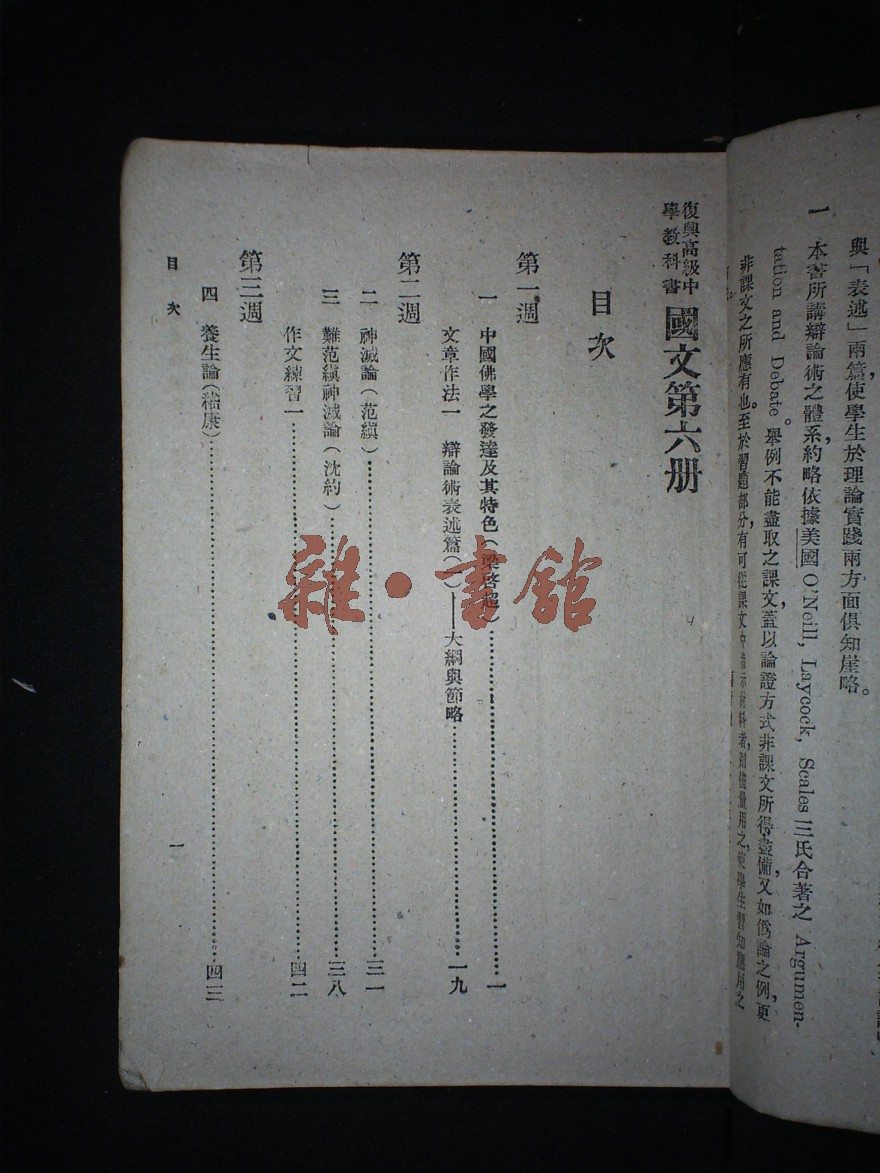 與「表述」兩篇，使學生於理論實踐兩方面俱知崖略。
一　本書所講辯論術之體系，約略依據美國 O'Neill, Laycock, Scales 三氏合著之 Argumen-
tation and Debate。舉例不能盡取之課文，蓋以論證方式非課文所得盡備，又如僞論之例，更
非課文之所應有也。至於習題部分，有可從課文中指示材料者，則儘量用之，使學生習知應用之
復興高級中
學教科書
國文第六册
目次
第一週
一　中國佛學之發達及其特色（梁啓超）……一
文章作法一　辯論術表述篇（一）——大綱與節略……一九
第二週
二　神滅論（范縝）……三一
三　難范縝神滅論（沈約）……三八
作文練習一……四二
第三週
四　養生論（嵇康）……四三
目次
一
雜·書館